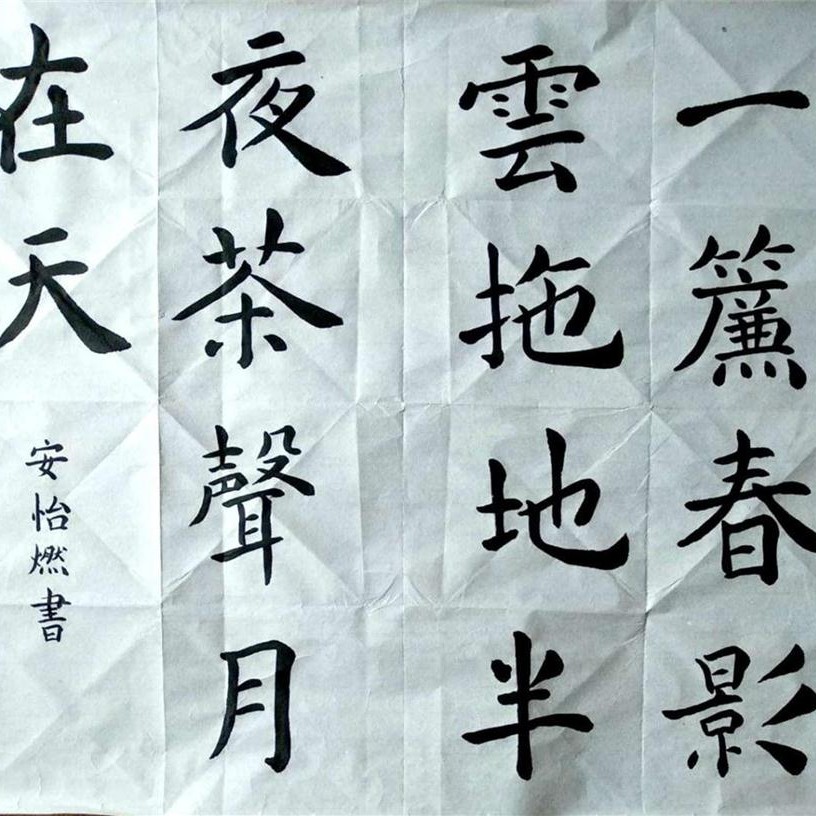 一簾春影
雲拖地半
夜茶聲月
在天
安怡燃書